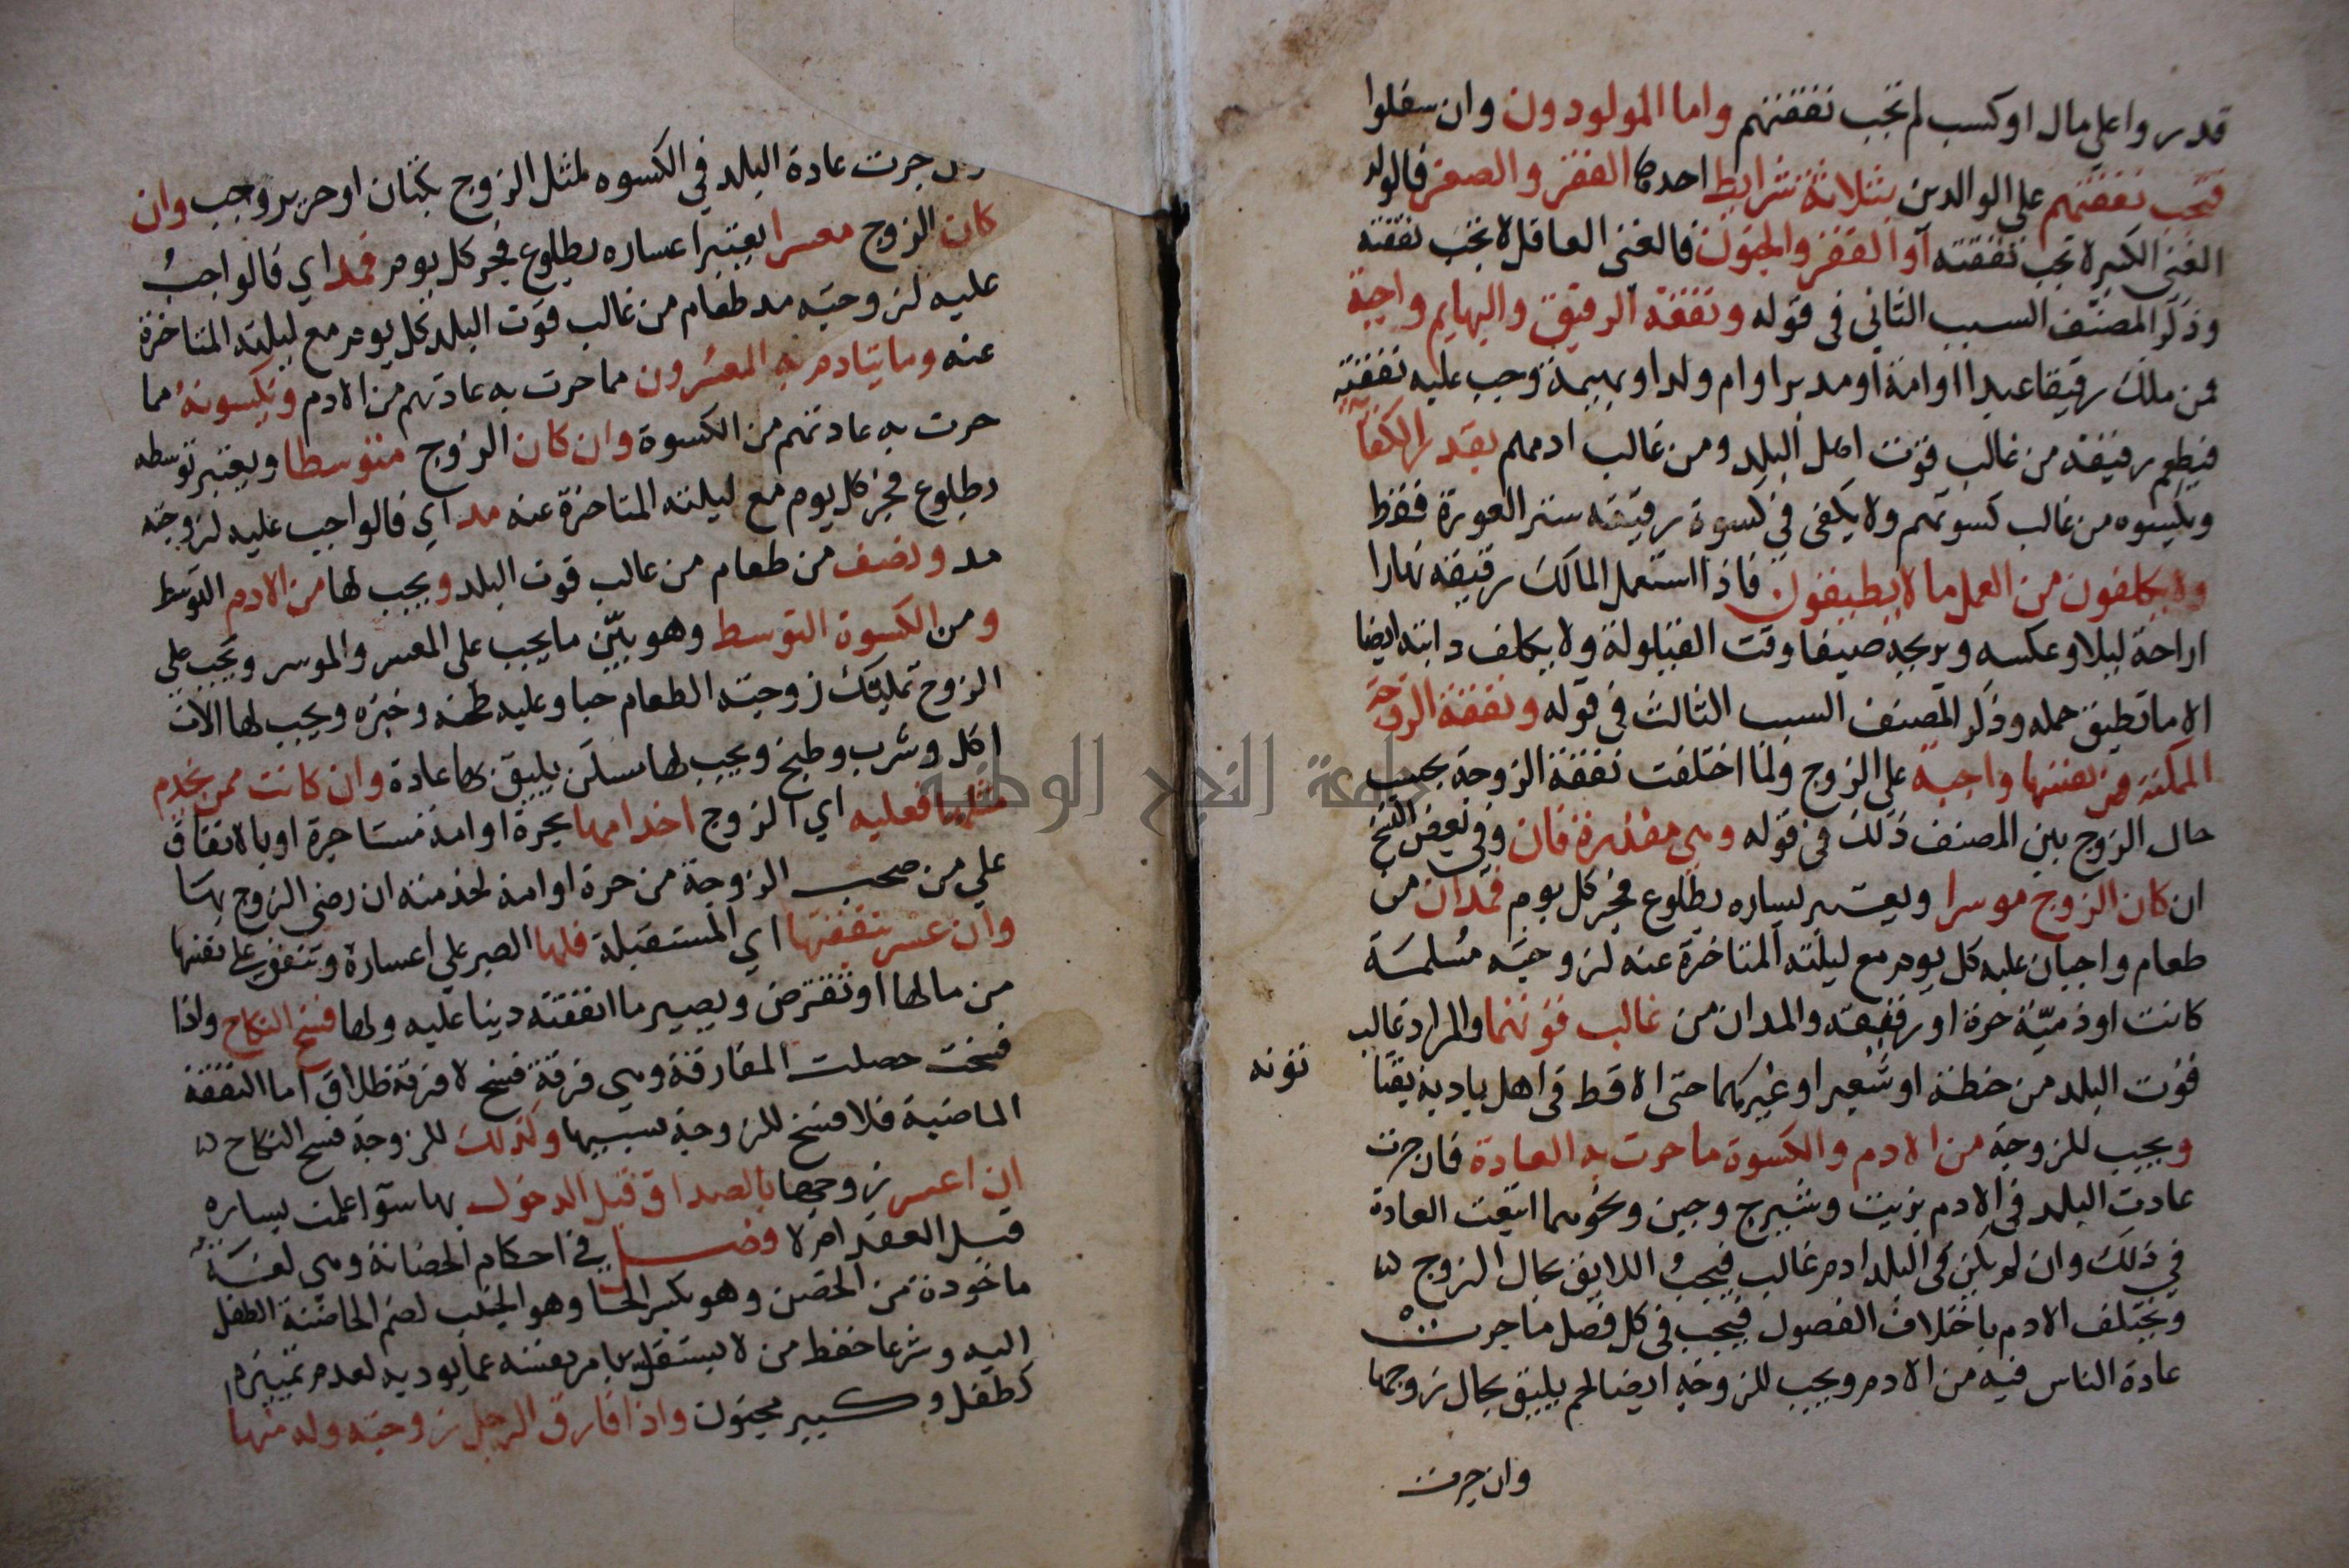 قدروا على مال او كسب لم تجب نفقتهم واما المولودون وان سفلوا
فتجب نفقتهم على الوالدين بثلاثة شرايط احدها الفقر والصغر فالولد
الغني الكبير لا تجب نفقته او الفقر والجنون فالغني العاقل لا تجب نفقته
وذكر المصنف السبب الثاني في قوله ونفقة الرقيق والبهايم واجبة
فمن ملك رقيقا عبدا او امة او مدبرا او ام ولد او بهيمة وجب عليه نفقته
فيطعم رقيقه من غالب قوت اهل البلد ومن غالب ادمهم بقدر الكفاية
ويكسوه من غالب كسوتهم ولا يكفي في كسوة رقيقه ستر العورة فقط
ولا يكلفون من العمل ما لا يطيقون فاذا استعمل المالك رقيقه نهارا
اراحه ليلا وعكسه ويريحه صيفا وقت القيلولة ولا يكلف دابته ايضا
الا ما تطيق حمله وذكر المصنف السبب الثالث في قوله ونفقة الزوجة
الممكنة من نفسها واجبة على الزوج ولما اختلفت نفقة الزوجة بحسب
حال الزوج بين المصنف ذلك في قوله وهي مقدرة فان وفي بعض النسخ
ان كان الزوج موسرا ويعتبر يساره بطلوع فجر كل يوم فمدان من
طعام واجبان عليه كل يوم مع ليلته المتاخرة عنه لزوجته مسلمة
كانت او ذمية حرة او رقيقة والمدان من غالب قوتها والمراد غالب
قوت البلد من حنطة او شعير او غيرهما حتى الاقط في اهل بادية يقتا
تونه
ويجب للزوجة من الادم والكسوة ما جرت به العادة فان جرت
عادت البلد في الادم بزيت وشيرج وجبن ونحوهما اتبعت العادة
في ذلك وان لم يكن في البلد ادم غالب فيجب اللايق بحال الزوج
ويختلف الادم باختلاف الفصول فيجب في كل فصل ما جرت
عادة الناس فيه من الادم ويجب للزوجة ايضا لحم يليق بحال زوجها
وان جرت
جرت عادة البلد في الكسوه لمثل الزوج بكتان او حرير وجب وان
كان الزوج معسرا يعتبر اعساره بطلوع فجر كل يوم فمد اي فالواجب
عليه لزوجته مد طعام من غالب قوت البلد كل يوم مع ليلته المتاخرة
عنه وما يتادم به المعسرون مما جرت به عادتهم من الادم ويكسونه مما
جرت به عادتهم من الكسوة وان كان الزوج متوسطا ويعتبر توسطه
بطلوع فجر كل يوم مع ليلته المتاخرة عنه مد اي فالواجب عليه لزوجته
مد ونصف من طعام من غالب قوت البلد ويجب لها من الادم التوسط
ومن الكسوة التوسط وهو بين ما يجب على المعسر والموسر ويجب على
الزوج تمليك زوجته الطعام حبا وعليه طحنه وخبزه ويجب لها الات
اكل وشرب وطبخ ويجب لها مسكن يليق بها عادة وان كانت ممن يخدم
مثلها فعليه اي الزوج اخدامها بحرة او امة مستاجرة او بالانفاق
على من صحب الزوجة من حرة او امة لخدمته ان رضي الزوج بها
وان عسر بنفقتها اي المستقبلة فلها الصبر على اعساره وتنفق على نفسها
من مالها او تقترض ويصير ما انفقته دينا عليه ولها فسخ النكاح واذا
فسخت حصلت المفارقة وهي فرقة فسخ لا فرقة طلاق اما النفقة
الماضية فلا فسخ للزوجة بسببها وكذلك للزوجة فسخ النكاح
ان اعسر زوجها بالصداق قبل الدخول بها سوآ علمت يساره
قبل العقد ام لا فصل في احكام الحضانة وهي لغة
ماخوذة من الحضن وهو بكسر الحا وهو الجنب لضم الحاضنة الطفل
اليه وشرعا حفظ من لا يستقل بامر نفسه عما يوديه لعدم تمييزه
كطفل وكبير مجنون واذا فارق الرجل زوجته وله منها
جامعة النجاح الوطنية